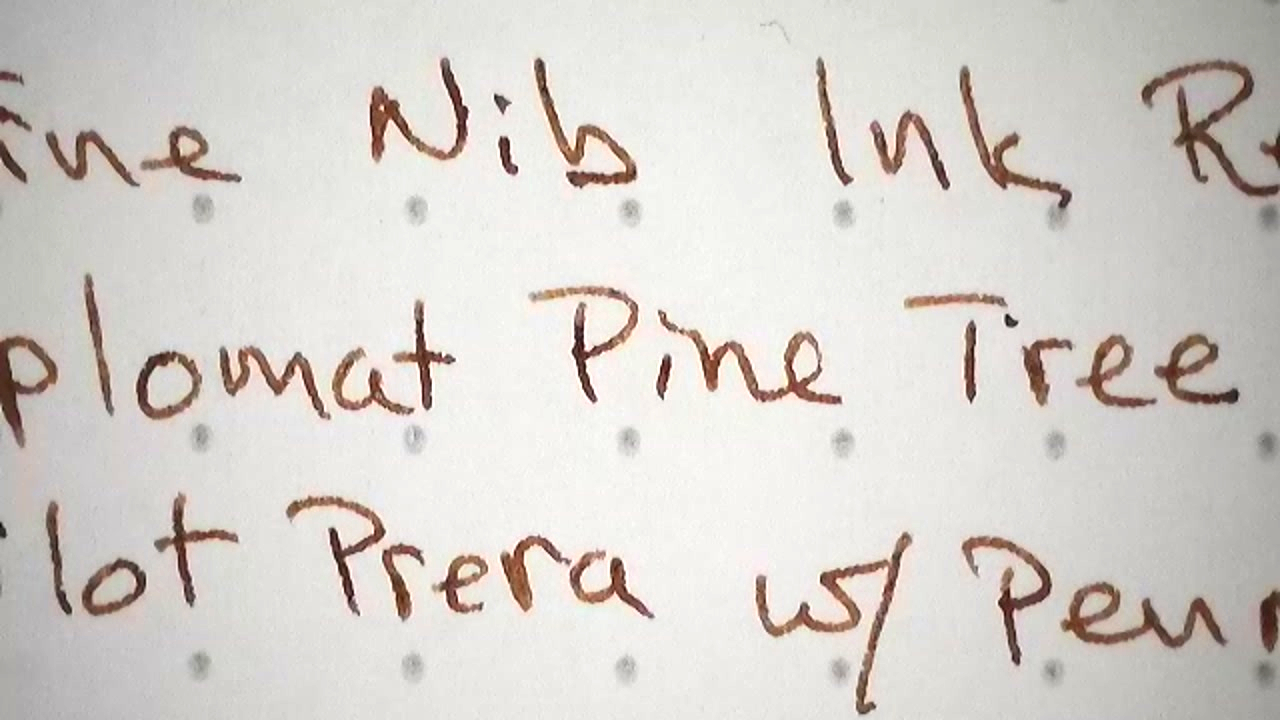 ine Nib Ink R
plomat Pine Tree
ilot Prera w/ Pen